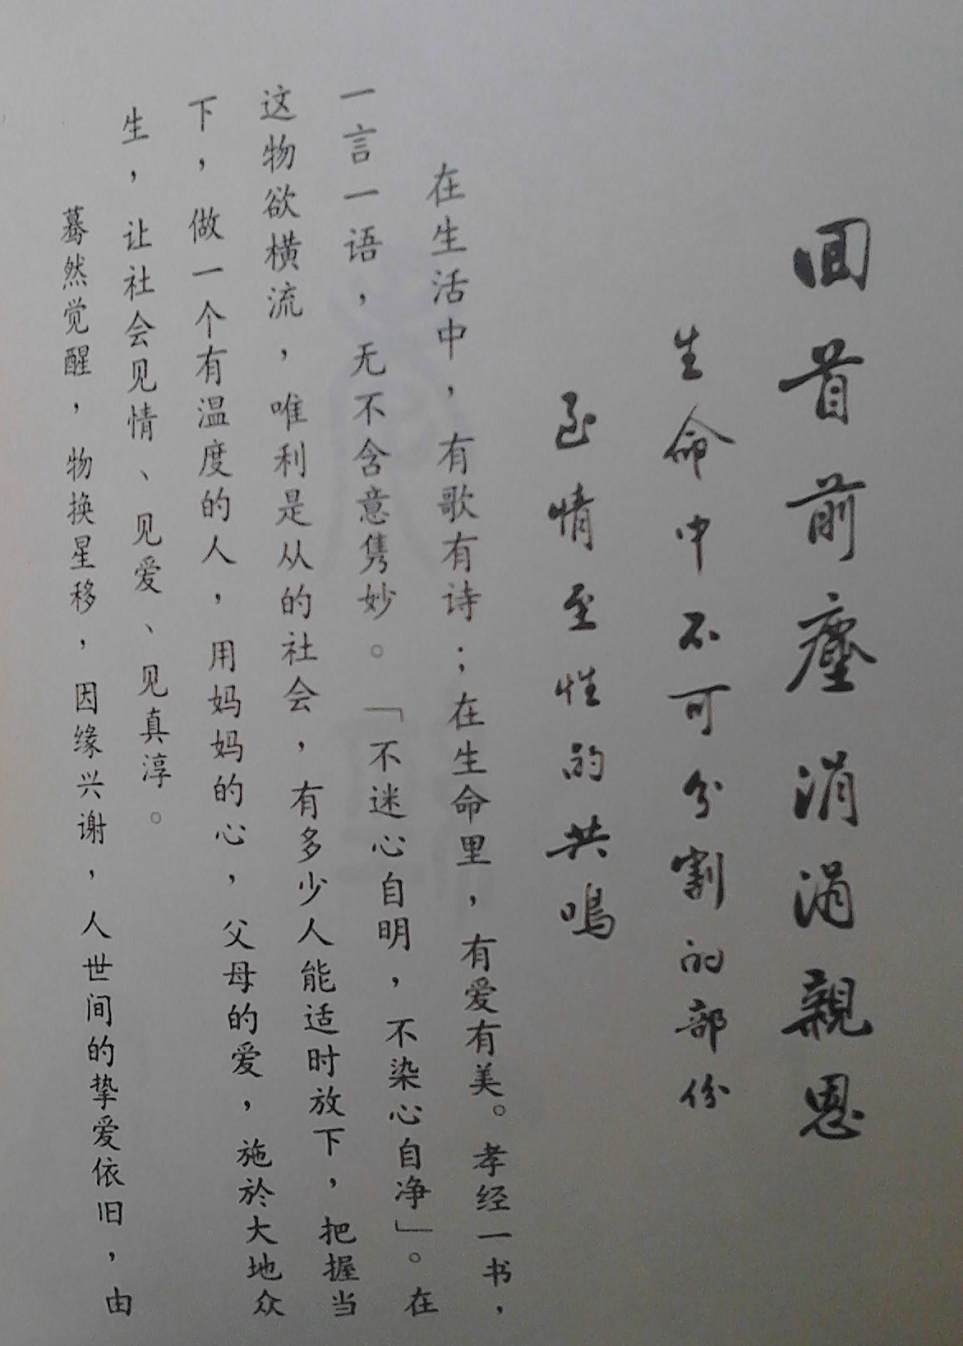 回首前塵涓涓親恩
生命中不可分割的部份
至情至性的共鳴
在生活中，有歌有诗；在生命里，有爱有美。孝经一书，
一言一语，无不含意隽妙。「不迷心自明，不染心自净」。在
这物欲横流，唯利是从的社会，有多少人能适时放下，把握当
下，做一个有温度的人，用妈妈的心，父母的爱，施於大地众
生，让社会见情、见爱、见真淳。
蓦然觉醒，物换星移，因缘兴谢，人世间的挚爱依旧，由